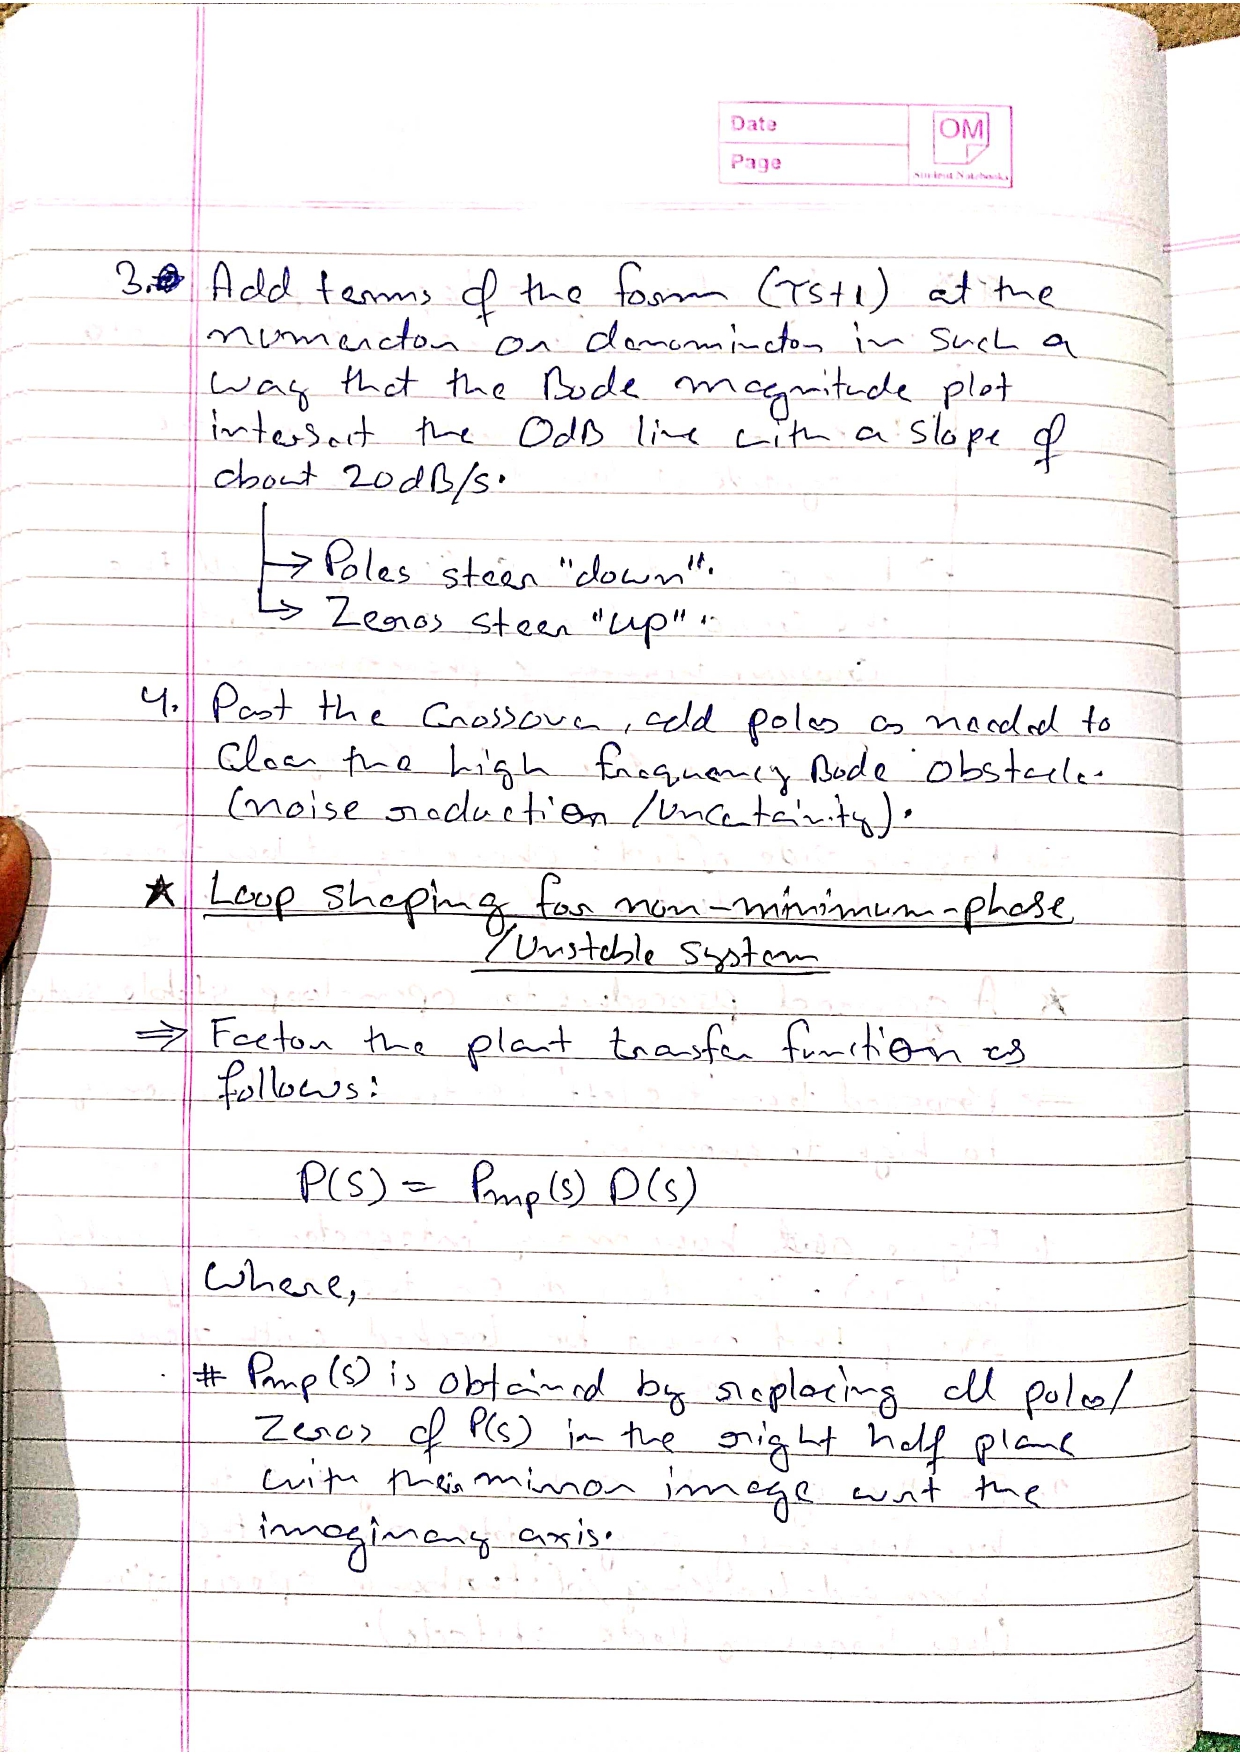 Date
Page
OM
Student Notebooks
3. Add terms of the form (τs+1) at the
numerator or denominator in such a
way that the Bode magnitude plot
intersect the 0dB line with a slope of
about 20dB/s.
→ Poles steer "down".
→ Zeros steer "up".
4. Past the Crossover, add poles as needed to
Clear the high frequency Bode obstacle.
(noise reduction /uncertainity).
★ Loop shaping for non-minimum-phase
/Unstable system
⇒ Factor the plant transfer function as
follows:
P(s) = Pmp(s) D(s)
Where,
# Pmp(s) is obtained by replacing all poles/
Zeros of P(s) in the right half plane
with their mirror image wrt the
imaginary axis.